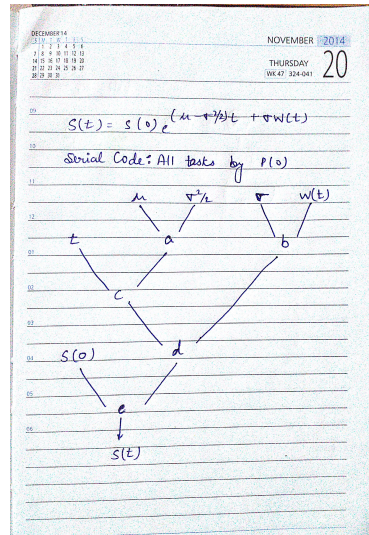 DECEMBER 14
S M T W T F S
1 2 3 4 5 6
7 8 9 10 11 12 13
14 15 16 17 18 19 20
21 22 23 24 25 26 27
28 29 30 31
NOVEMBER 2014
THURSDAY
WK 47 324-041
20
09
S(t) = S(0) e^(μ-σ²/2)t + σW(t)
10
Serial Code: All tasks by P(0)
11
μ σ²/2 σ W(t)
12
t a b
01
02
c
03
d
04
S(0)
05
e
06
S(t)